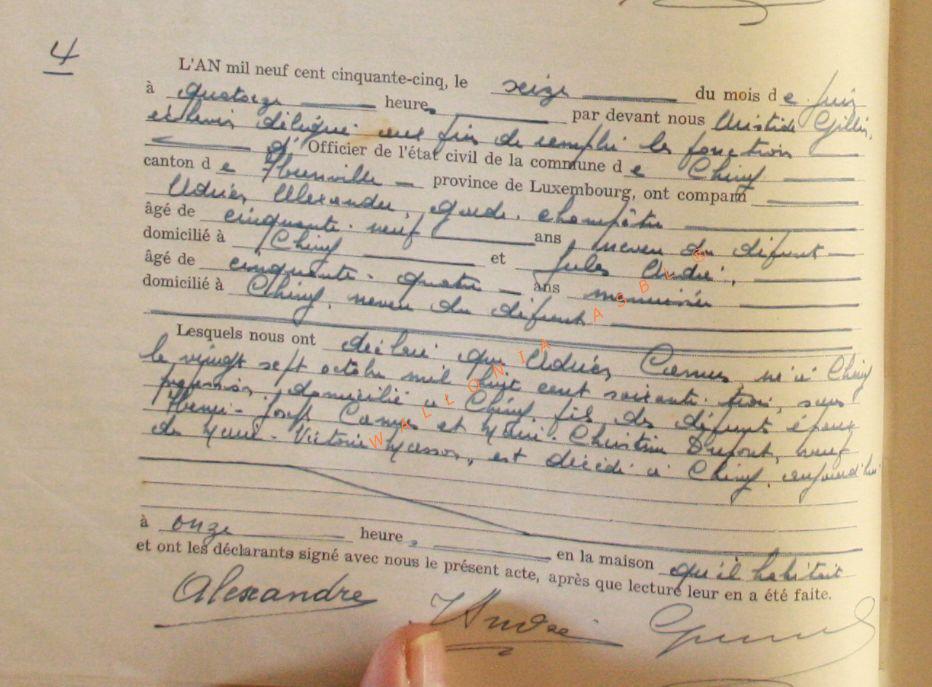 4
L'AN mil neuf cent cinquante-cinq, le seize du mois de Juin
à quatorze heures par devant nous Aristide Gillis,
échevin délégué aux fins de remplir les fonctions
d'Officier de l'état civil de la commune de Chiny
canton de province de Luxembourg, ont comparu
Adrien Alexandre, garde-champêtre
âgé de cinquante-neuf ans neveu du défunt
domicilié à Chiny et Jules André,
âgé de cinquante-quatre ans menuisier
domicilié à Chiny, neveu du défunt
Lesquels nous ont déclaré que Adrien Camus, né à Chiny
le vingt sept octobre mil huit cent soixante-trois, sans
profession, domicilié à Chiny, fils des défunts époux
Henri-Joseph Camus et Marie-Christine Dufont, veuf
de Marie-Victoire Masson, est décédé à Chiny, aujourd'hui
à onze heures en la maison qu'il habitait
et ont les déclarants signé avec nous le présent acte, après que lecture leur en a été faite.
Alexandre J André
WALLONIA ASBL ©